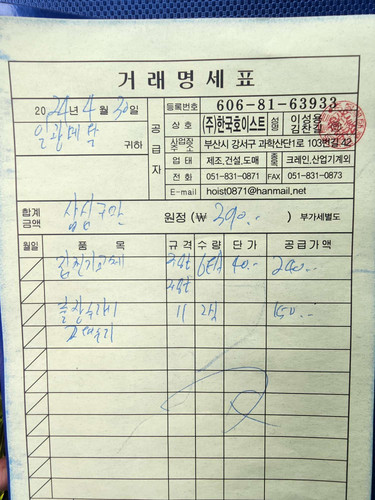 거래명세표
2024년 4월 30일
일광메탈 귀하
공급자
등록번호 606-81-63933
상호 (주)한국호이스트 성명 이성용 김찬길 인
사업장주소 부산시 강서구 과학산단1로 103번길 42
업태 제조,건설,도매 종목 크레인,산업기계외
전화 051-831-0871 FAX 051-831-0873
E-mail hoist0871@hanmail.net
합계금액 삼십구만 원정 (₩ 390.-) 부가세별도
월일 품목 규격 수량 단가 공급가액
40.- 240.-
출장수리비 150.-